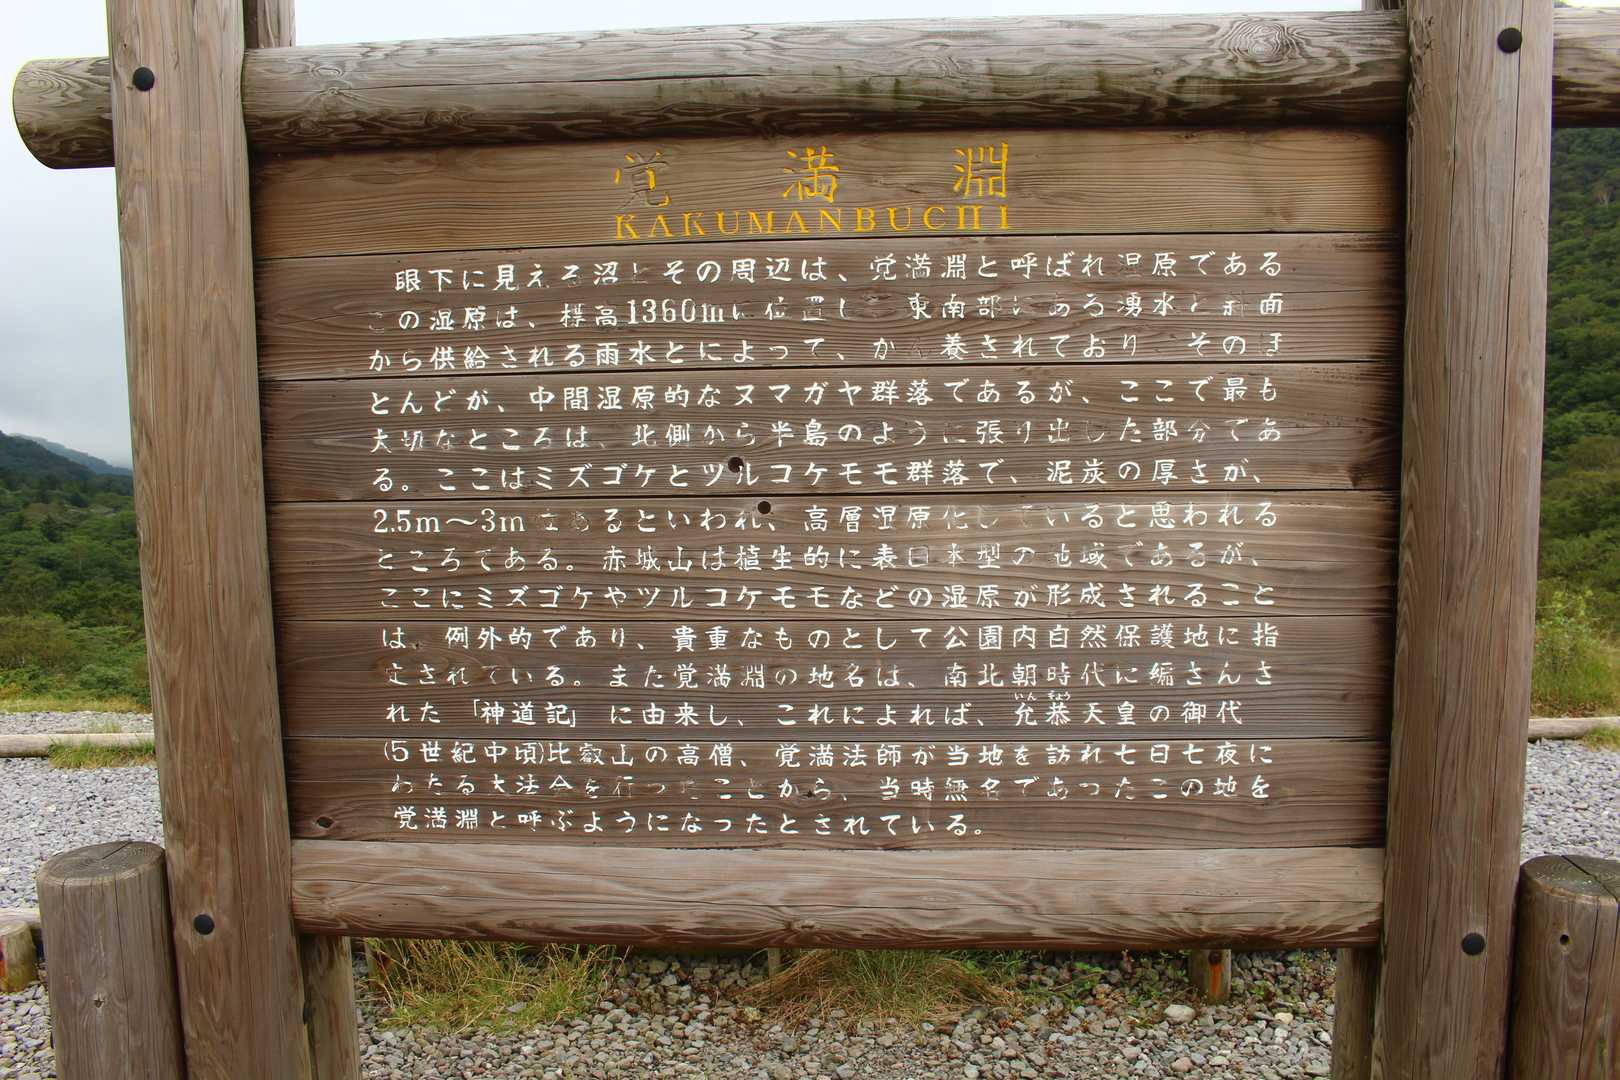 覚満淵
KAKUMANBUCHI
眼下に見える沼とその周辺は、覚満淵と呼ばれ湿原である
この湿原は、標高1360mに位置し 東南部にある湧水と斜面
から供給される雨水とによって、かん養されており そのほ
とんどが、中間湿原的なヌマガヤ群落であるが、ここで最も
大切なところは、北側から半島のように張り出した部分であ
る。ここはミズゴケとツルコケモモ群落で、泥炭の厚さが、
2.5m〜3m位あるといわれ、高層湿原化していると思われる
ところである。赤城山は植生的に表日本型の地域であるが、
ここにミズゴケやツルコケモモなどの湿原が形成されること
は、例外的であり、貴重なものとして公園内自然保護地に指
定されている。また覚満淵の地名は、南北朝時代に編さんさ
れた「神道記」に由来し、これによれば、允恭天皇の御代
いんぎょう
(5世紀中頃)比叡山の高僧、覚満法師が当地を訪れ七日七夜に
わたる大法会を行ったことから、当時無名であったこの地を
覚満淵と呼ぶようになったとされている。